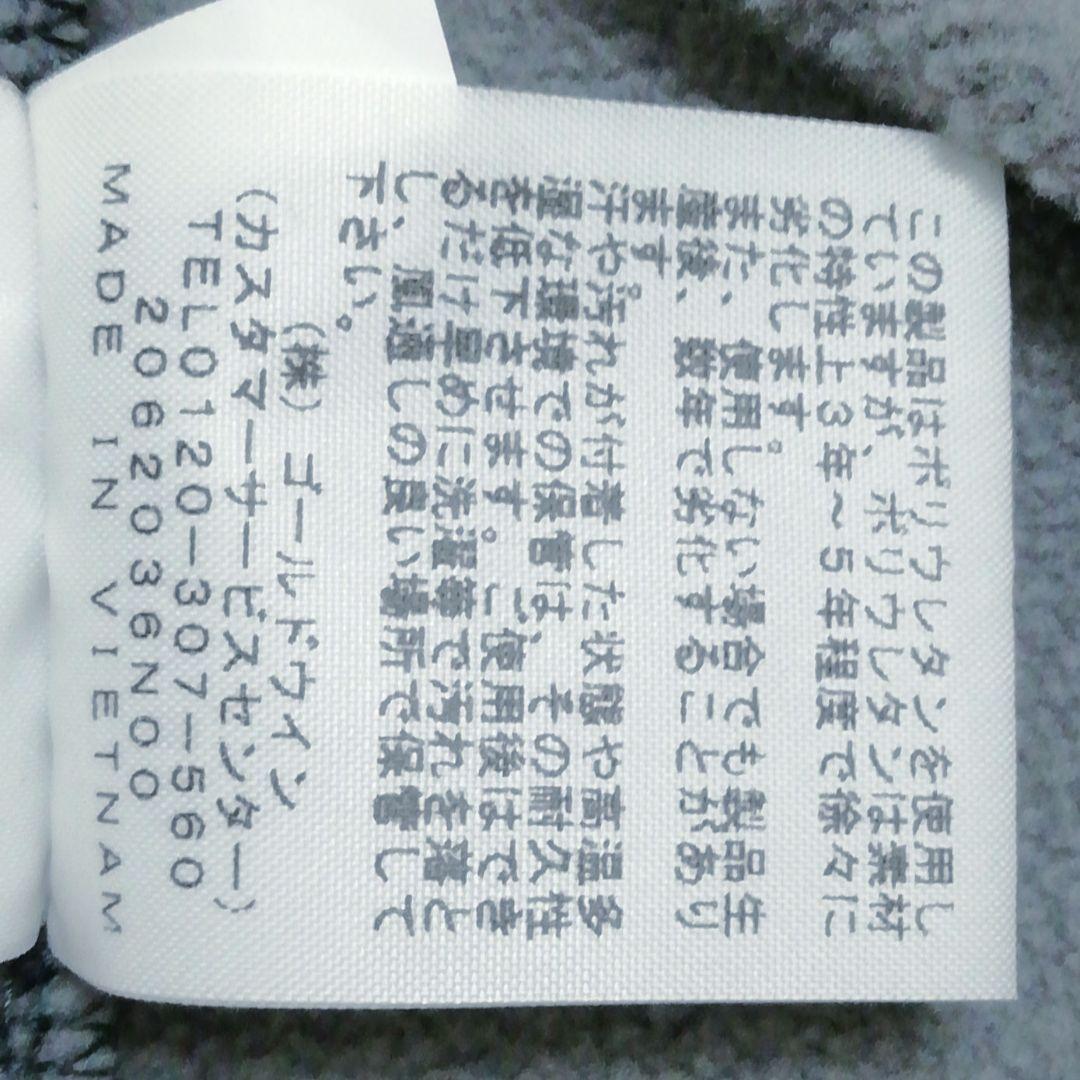 この製品はポリウレタンを使用し
ていますが、ポリウレタンは素材
の特性上3年~5年程度で徐々に
劣化します。
また、使用しない場合でも製品生
産後、数年で劣化することがあり
ます。
汗や汚れが付着した状態や高温多
湿な環境での保管は、その耐久性
を低下させます。ご使用後はでき
るだけ早めに洗濯等で汚れを落と
し、風通しの良い場所で保管して
下さい。
(株)ゴールドウイン
(カスタマーサービスセンター)
TEL0120-307-560
2062036N00
MADE IN VIETNAM